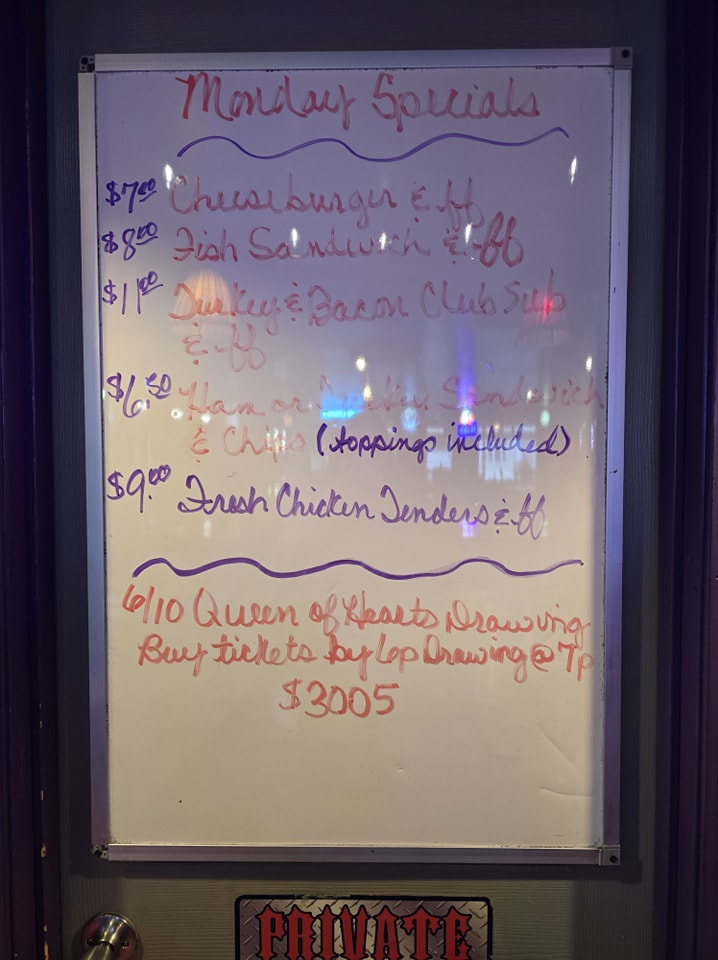 Monday Specials
$7.00 Cheeseburger & ff
$8.00 Fish Sandwich & ff
$11.00 Turkey & Bacon Club Sub
& ff
$6.50 Ham or Turkey Sandwich
& Chips (toppings included)
$9.00 Fresh Chicken Tenders & ff
6/10 Queen of Hearts Drawing
Buy tickets by 6p Drawing @ 7p
$3005
PRIVATE